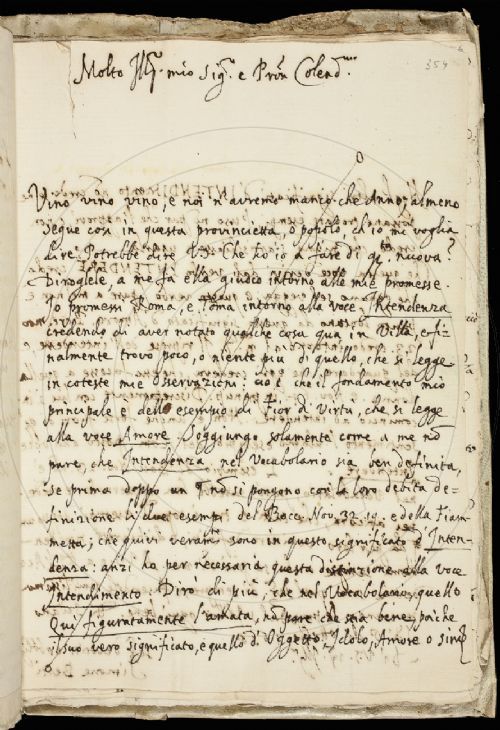 354
Molto Ill.re mio Sig.r e Pron Colend.mo
Vino vino vino, e noi n'avremo manco che Anno, almeno
segue cosi in questa provincietta, o popolo, ch'io mi voglia
dire. Potrebbe dire VS. Che ho io a fare di q.ta nuova?
Diroglele, a me fa ella giudicio intorno alle mie promesse.
Io promessi Roma, e Toma intorno alla voce Intendenza
credendo di aver notato qualche cosa qua in Villa, e fi-
nalmente trovo poco, o niente piu di quello, che si legge
in coteste mie Osservazioni: cio è che il fondamento mio
principale è dello esempio di Fior di Virtù, che si legge
alla voce Amore. Soggiungo solamente come a me nō
pare, che Intendenza, nel Vocabolario sia ben definita,
se prima doppo un q. nō si pongono con la loro debita de-
finizione li due esempi del Bocc. Nov. 32. 19. e della Fiam-
metta; che quivi veram.te sono in questo significato d'Inten-
denza: anzi ho per necessaria questa distinzione alla voce
Intendimento. Dirò di più, che nel Vocabolario, quello
Qui figuratamente l'amata, nō pare che stia bene, poiche
il suo vero significato, e quello d'Oggetto, Idolo, Amore o simil